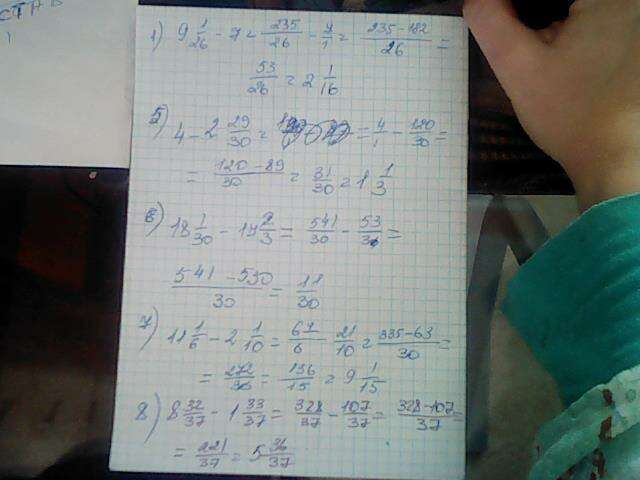 СТАВ
1) 9 1/26 - 7 = 235/26 - 7/1 = 235-182/26 =
53/26 = 2 1/16
5) 4 - 2 29/30 = = 4/1 - 120/30 =
= 120-89/30 = 31/30 = 1 1/3
6) 18 1/30 - 2/3 = 541/30 - 53/3 =
541-530/30 = 11/30
7) 11 1/6 - 2 1/10 = 67/6 - 21/10 = 335-63/30 =
= 272/30 = 136/15 = 9 1/15
8) 8 32/37 - 1 33/37 = 328/37 - 107/37 = 328-107/37 =
= 221/37 = 5 36/37